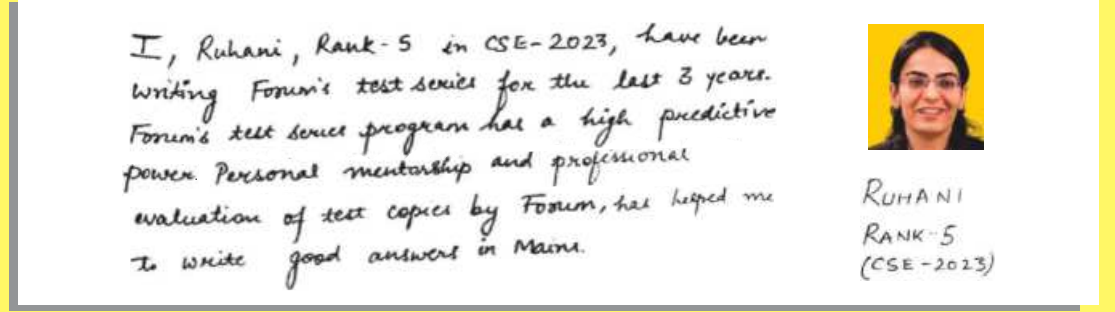 I, Ruhani, Rank-5 in CSE-2023, have been
writing Forum's test series for the last 3 years.
Forum's test series program has a high predictive
power. Personal mentorship and professional
evaluation of test copies by Forum, has helped me
to write good answers in Mains.
RUHANI
RANK-5
(CSE-2023)